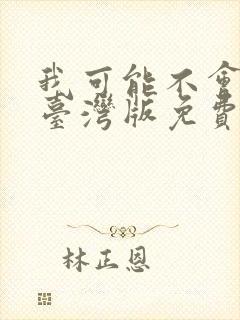 我可能不會
臺灣版免費
林正恩